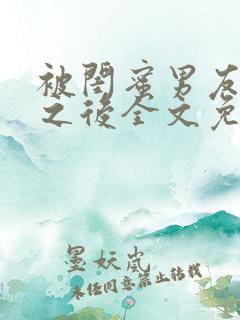 被閨蜜男友
之後全文免
墨妖嵐
未經同意禁止轉載